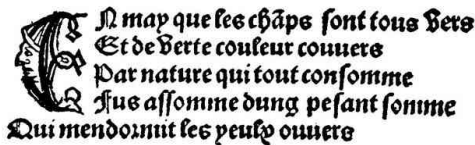 En may que les chãps sont tous Vers
Et de Verte couleur couuers
Par nature qui tout consomme
Fus assomme dung pesant somme
Qui mendormit les yeulx ouuers